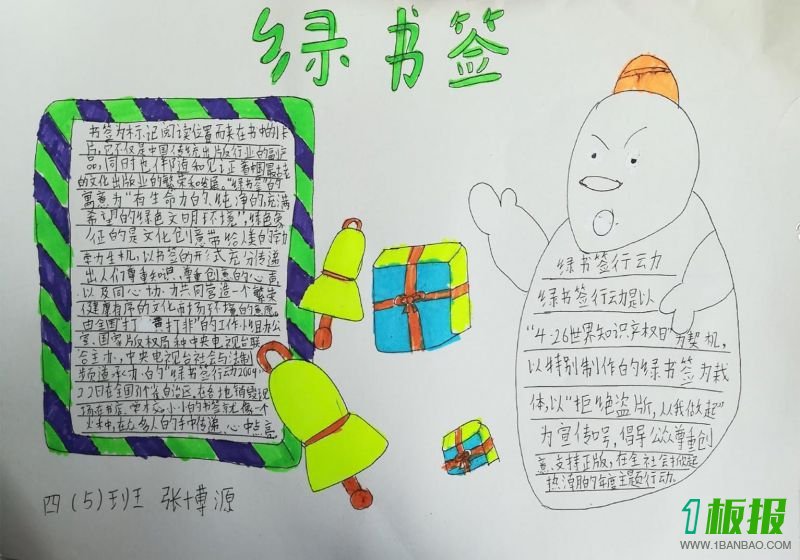 绿书签
书签为标记阅读位置而夹在书中的卡
片,它不仅是中国传统出版行业的副产
品,同时也伴随和见证着中国最持
的文化出版业的繁荣和发展。“绿书签”的
寓意为“有生命力的、纯净的、充满
希望的绿色文明环境”,绿色象
征的是文化创意带给人类的勃
勃生机,以书签的形式充分传递
出人们尊重知识、尊重创意的心声,
以及同心协力共同营造一个繁荣
健康有序的文化市场环境的意愿。
由全国“打 打非”的工作小组办公
室、国家版权局和中央电视台联
合主办,中央电视台社会与法制
频道承办的“绿书签行动2009”
22日在全国31个省自治区,在各地销毁现
场在书店、学校,小小的书签就像一个
火种,在众多人的手中传递,心中点亮
四(5)班 张博源
绿书签行动
绿书签行动是以
“4·26世界知识产权日”为契机,
以特别制作的绿书签为载
体,以“拒绝盗版,从我做起”
为宣传口号,倡导公众尊重创
意、支持正版,在全社会掀起
热潮的年度主题行动.
1板报
WWW.1BANBAO.COM